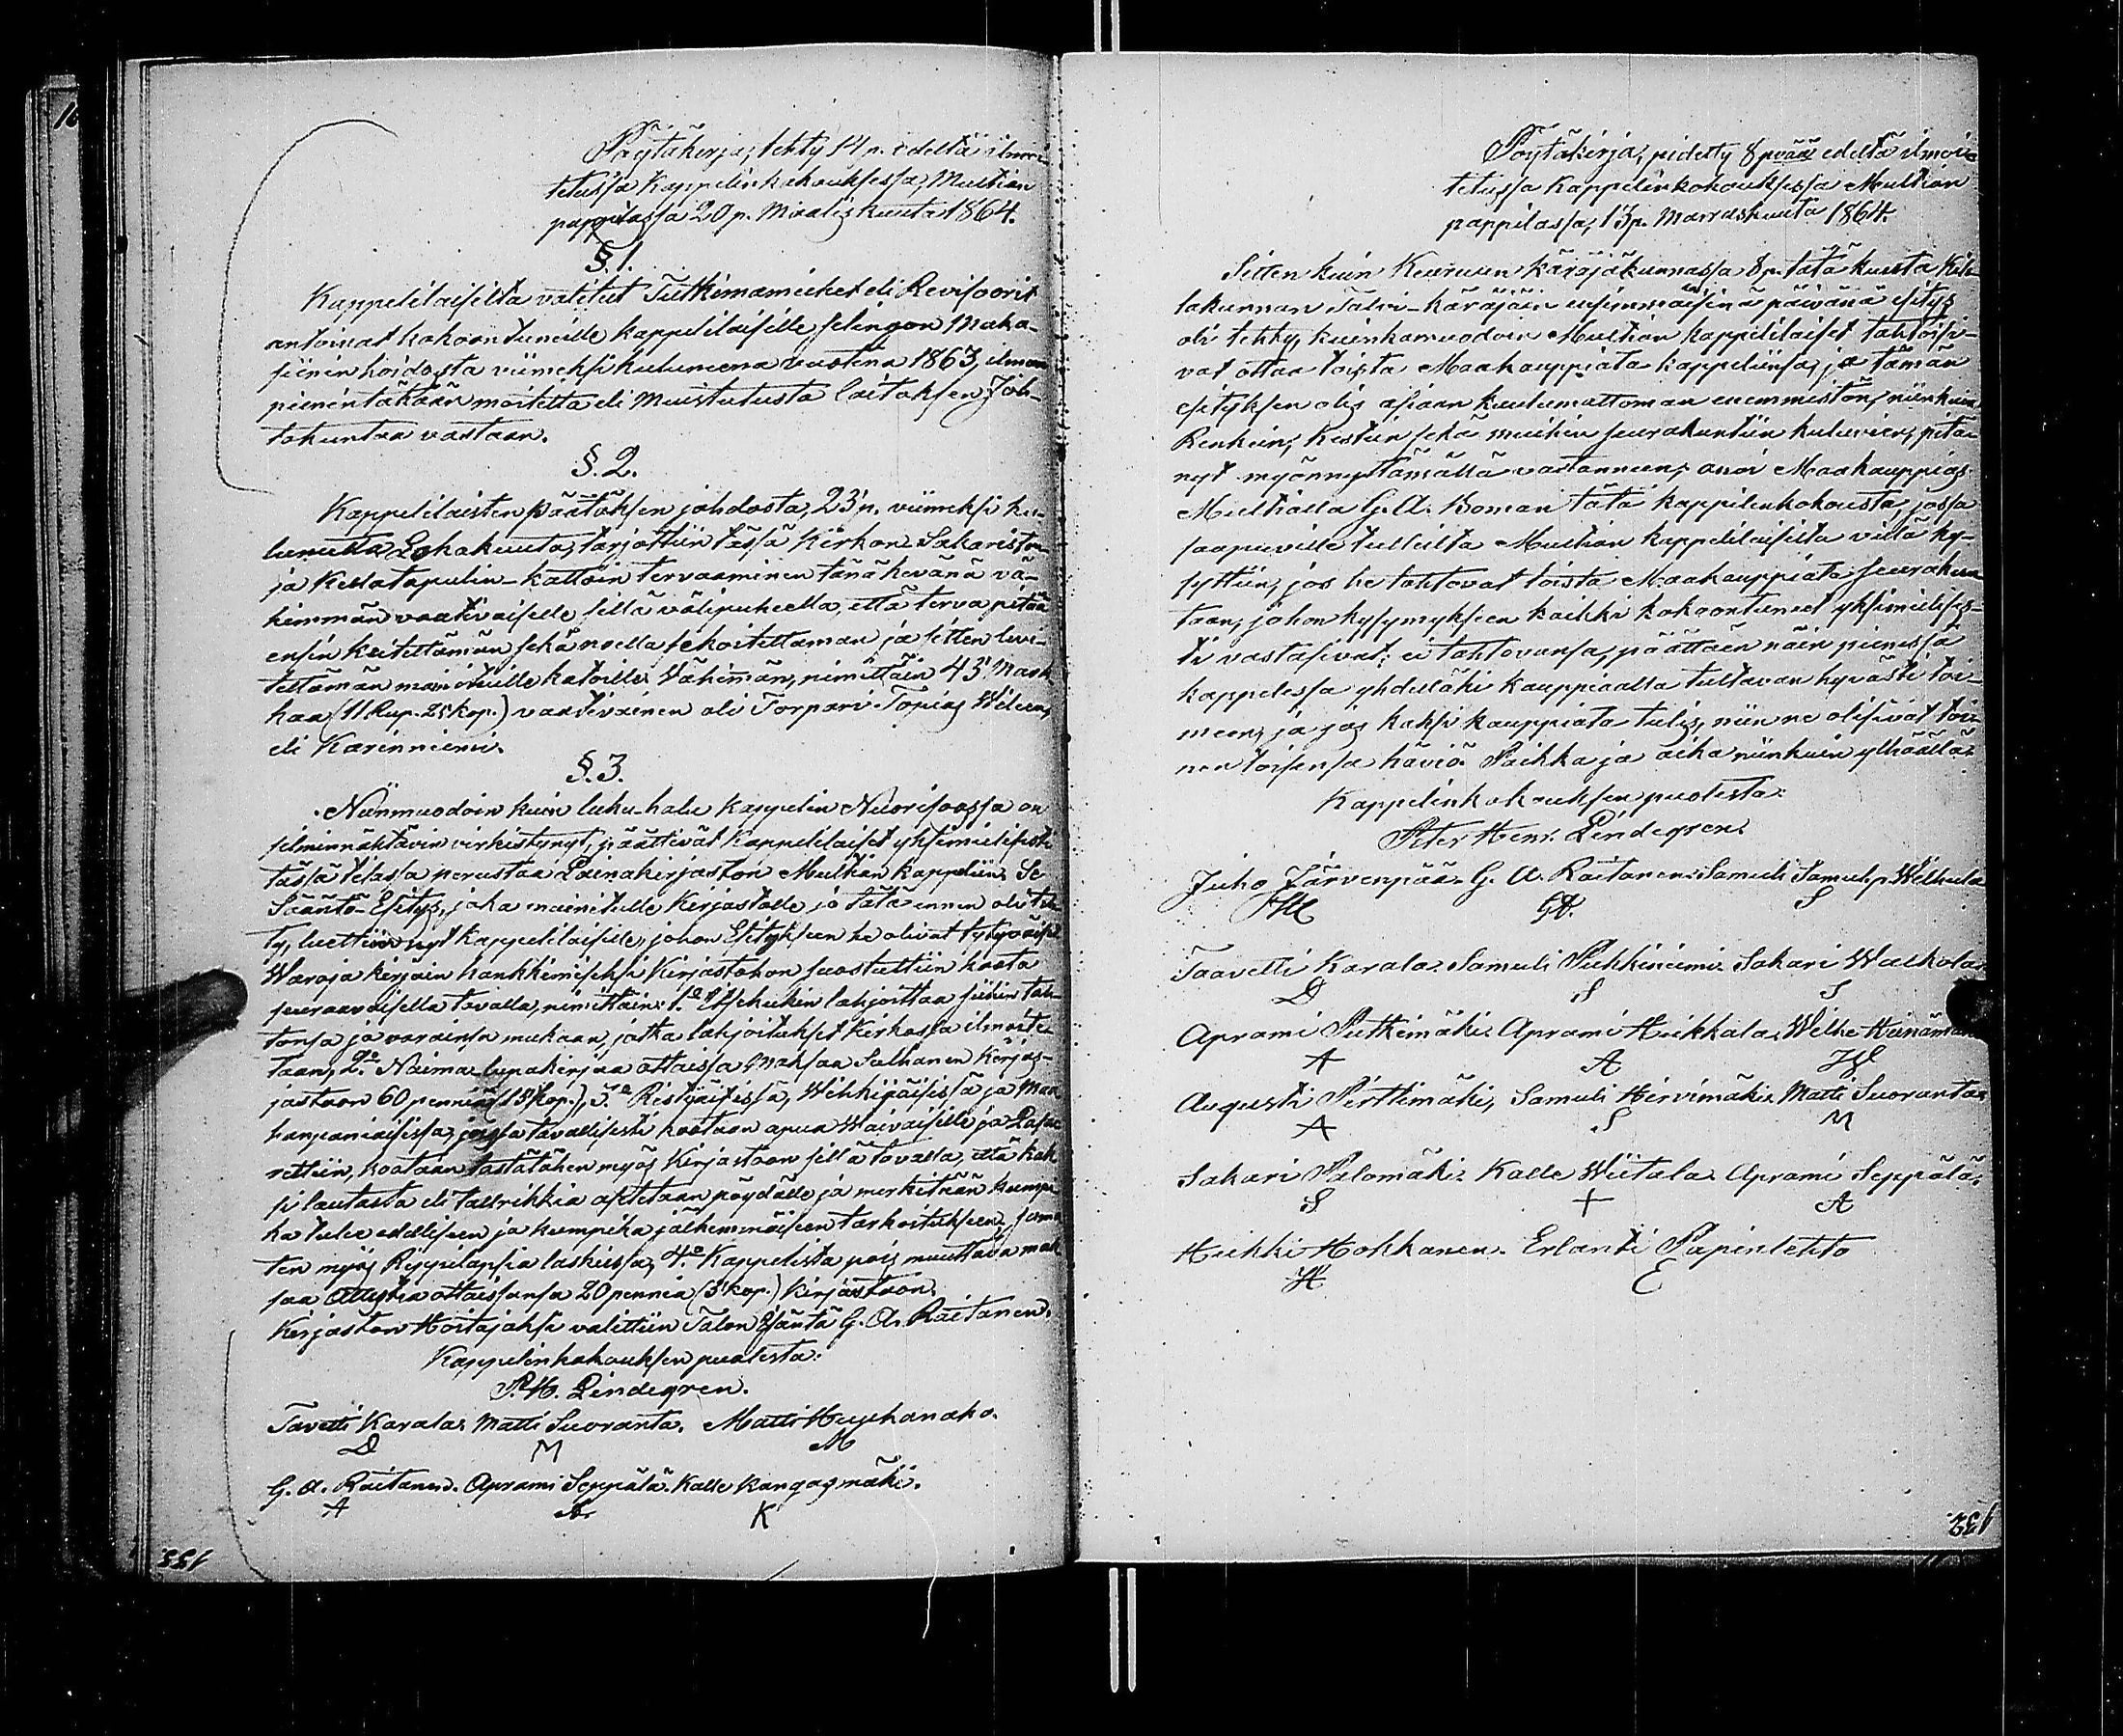 Pöytäkirja, tehty 14 p. edeltä ilmoi-
tetussa Kappelinkokouksessa, Multian
pappilassa 20 p. Maaliskuuta 1864.
§. 1.
Kappelilaisilta valitut Tutkimamiehet eli Revisoorit
antoivat kokoontuneille kappelilaisille selingon Maka-
siinin hoidosta viimeksi kuluneena vuotena 1863, ilman
pienintäkään moitetta eli muistutusta laitoksen Joh-
tokuntaa vastaan.
§. 2.
Kappelilaisten päätöksen johdosta, 23 p. viimeksi ku-
lunutta Lokakuuta, tarjottiin tässä Kirkon Sakariston
ja Kellotapulin-kattoin tervaaminen tänä kevänä vä-
himmän vaativaiselle sillä välipuheella, että terva pitää
ensin keitettämän sekä noella sekoitettaman ja sitten levi-
tettämän mainituille katoille. Vähimän, nimittäin 45 Mark
kaa (11 Rup. 25 kop.) vaativainen oli Torpari Topias Wileen,
eli Karinniemi.
§. 3.
Niinmuodoin kuin luku-halu Kappelin Nuorisoossa on
silminnähtävin virkistynyt, päättivät Kappelilaiset yksimielisesti
tässä tilassa perustaa Lainakirjaston Multian kappeliin. Se
Sääntö-Esitys, joka mainitulle Kirjastolle jo tätä ennen oli teh-
ty, luettiin nyt Kappelilaisille, johon Esitykseen he olivat tytyväiset.
Waroja kirjain hankkimiseksi Kirjastohon suostuttiin koota
seuraavaisella tavalla, nimittäin: 1:o Itsekukin lahjoittaa siihin tah-
tonsa ja varainsa mukaan, jotka lahjoitukset Kirkossa ilmoite-
taan, 2:o Naima-lupakirjaa ottaissa maksaa Sulhanen Kirjas-
jastoon 60 penniä (15 Kop.), 3:o Ristiäisissä, Wihkijäisissä ja Maa
hanpaniaisissa, joissa tavallisesti kootaan apua Waivaisille ja Lasa-
rettiin, kootaan tästälähen myös Kirjastoon sillä tavalla, että kak
si lautasta eli tallrikkia asetetaan pöydälle ja merkitään kumpi
ka tulee edelliseen ja kumpika jälkimmäiseen tarkoitukseen, sama
ten myös Rippilapsia laskiessa, 4:o Kappelista pois muuttava mak
saa Attestia ottaissansa 20 penniä (5 kop.) Kirjastoon.
Kirjaston Hoitajaksi valittiin Talon Isäntä G. A. Raitanen.
Kappelinkokouksen puolesta:
P. H. Lindegren.
Tavetti Karala. Matti Suoranta. Matti Huyhanaho.
D M M
G. A. Raitanen. Aprami Seppälä. Kalle Kangasmäki.
A A. K
133
Pöytäkirja, pidetty 8 pvää edeltä ilmoi-
tetussa Kappelinkokouksessa Multian
pappilassa, 13 p. Marraskuuta 1864.
Sitten kuin Keuruun käräjäkunnassa 8 p. tätä kuuta Kihla-
lakunnan Talvi-käräjäin ensimmäisinä päivänä esitys
oli tehty, kuinkamuodoin Multian kappelilaiset tahtoisi-
vat ottaa toista Maakauppiata kappeliinsa, ja tämän
esityksen olis asiaan kuulumattoman enemmistön, niinkuin
Renkein, Kestiin sekä muihin seurakuntiin kuluvien, pitä-
nyt myönnyttämällä vastanneen; anoi Maakauppias
Multialla G. A. Boman tätä kappelinkokousta, jossa
saapuville tulleilta Multian kappelilaisilta vielä ky-
syttiin, jos he tahtovat toista Maakauppiata seurakun
taan, johon kysymykseen kaikki kokoontuneet yksimielises-
ti vastasivat: ei tahtovansa, päättäen näin pienessä
kappelissa yhdelläki kauppiaalla tultavan hyvästi toi-
meen, ja jos kaksi kauppiata tulis, niin ne olisivat toi-
nen toisensa häviö. Paikka ja aika niinkuin ylhäällä.
Kappelinkokouksen puolesta:
Peter Henr. Lindegren.
Juho Järvenpää. G. A. Raitanen. Samuli Samulip. Wilhula
GA. S
Taavetti Karala. Samuli Pukkiniemi. Sakari Walkola.
D S S
Aprami Putkimäki. Aprami Heikkala. Wilhe Heinämäki
A A W
Augusti Pirttimäki, Samuli Hirvimäki. Matti Suoranta.
A S M
Sakari Palomäki. Kalle Wiitala. Aprami Seppälä.
S + A
Heikki Hokkanen. Erlanti Papinlehto
H E
132